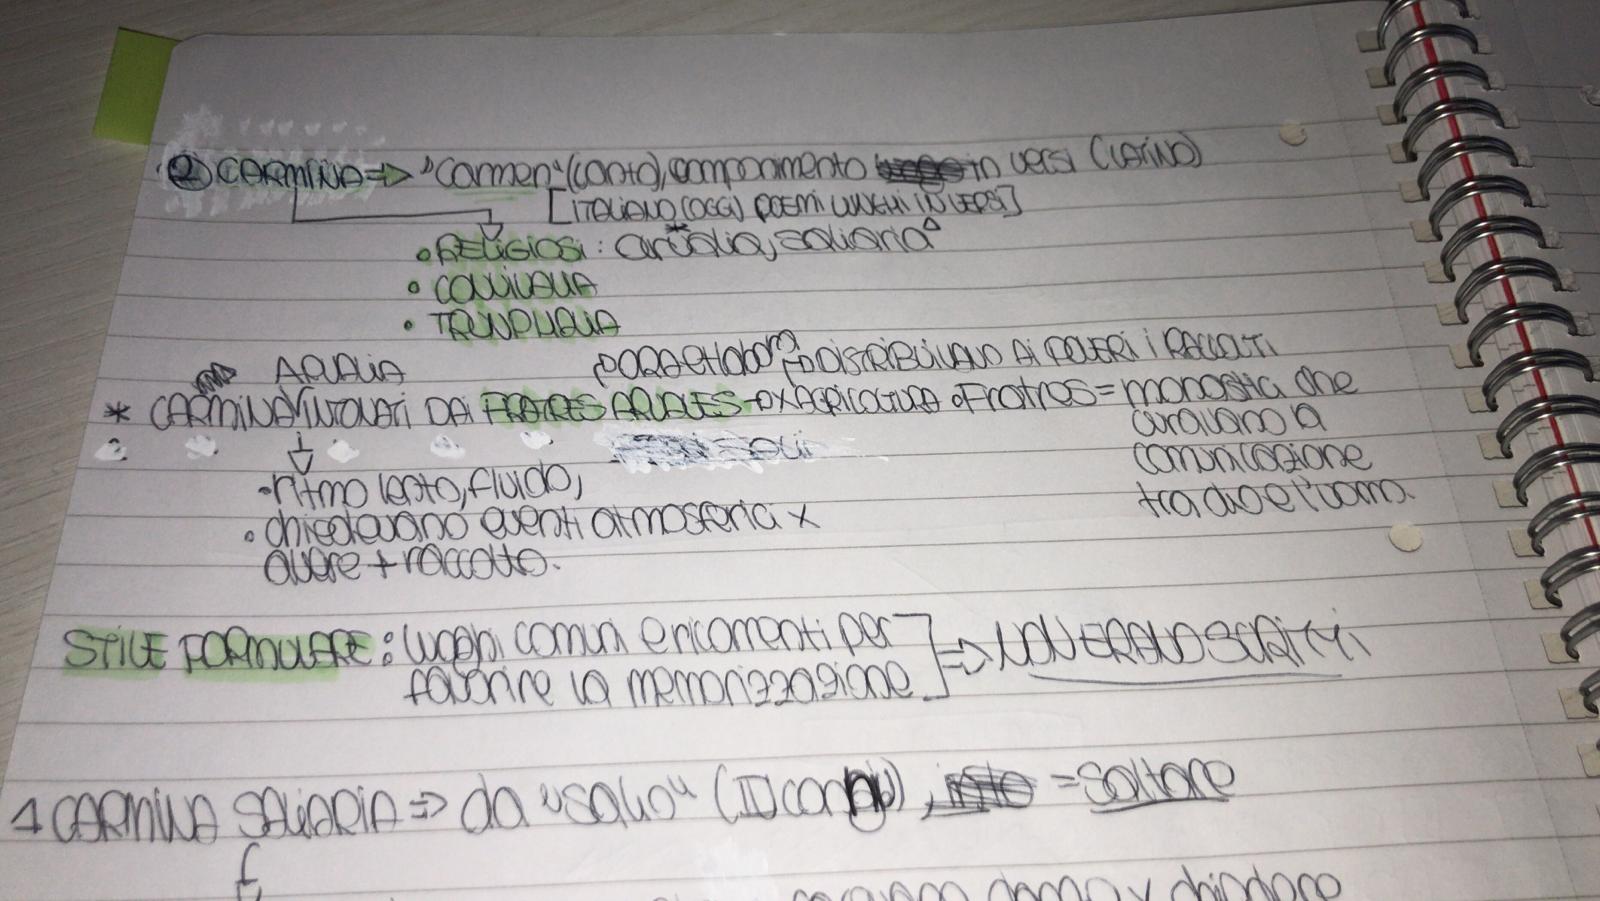 ② CARMINA => "Carmen" (canto), componimento in versi (LATINO)
[ITALIANO (OGGI) POEMI LUNGHI IN VERSI]
• RELIGIOSI : arvalia*, saliaria△
• CONVIVALIA
• TRIUNPHALIA
ARVALIA
DISTRIBUIVANO AI POVERI I RACCOLTI
* CARMINA INTONATI DAI FRATRES ARVALES → X AGRICOLTURA • Fratres = monaci che
curavano la
comunicazione
tra dio e l'uomo.
• ritmo lento, fluido,
• chiedevano eventi atmosferici x
avere + raccolto.
STILE FORMULARE : luoghi comuni e ricorrenti per
favorire la memorizzazione ] => NON ERANO SCRITTI
CARMINA SALIARIA => da "salio" (II coniug), = saltare